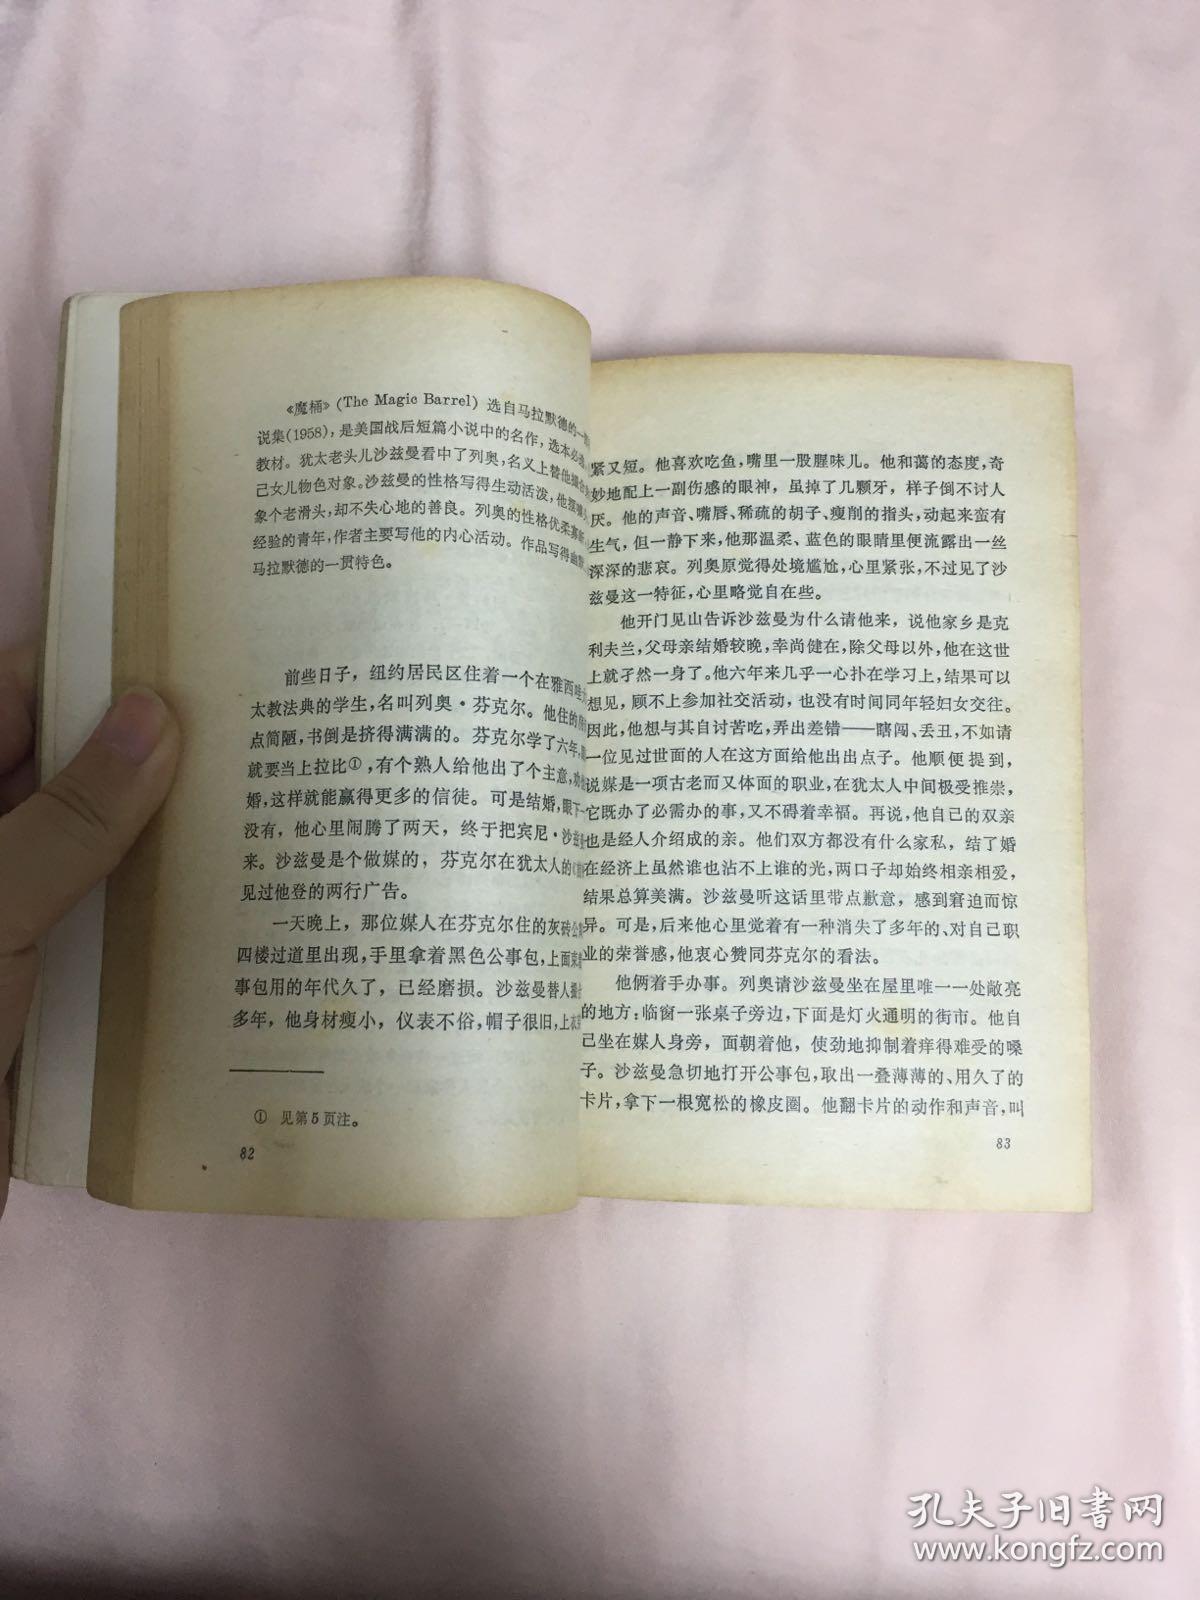 《魔桶》(The Magic Barrel) 选自马拉默德的一
说集(1958)，是美国战后短篇小说中的名作，选本必
教材。犹太老头儿沙兹曼看中了列奥，名义上替他
己女儿物色对象。沙兹曼的性格写得生动活泼，他
象个老滑头，却不失心地的善良。列奥的性格优柔寡
经验的青年，作者主要写他的内心活动。作品写得幽默
马拉默德的一贯特色。
前些日子，纽约居民区住着一个在雅西
太教法典的学生，名叫列奥·芬克尔。他住的
点简陋，书倒是挤得满满的。芬克尔学了六年，
就要当上拉比①，有个熟人给他出了个主意，
婚，这样就能赢得更多的信徒。可是结婚，眼下一
没有，他心里闹腾了两天，终于把宾尼·沙兹
来。沙兹曼是个做媒的，芬克尔在犹太人的
见过他登的两行广告。
一天晚上，那位媒人在芬克尔住的灰砖公
四楼过道里出现，手里拿着黑色公事包，上面
事包用的年代久了，已经磨损。沙兹曼替人
多年，他身材瘦小，仪表不俗，帽子很旧，上衣
① 见第5页注。
82
紧又短。他喜欢吃鱼，嘴里一股腥味儿。他和蔼的态度，奇
妙地配上一副伤感的眼神，虽掉了几颗牙，样子倒不讨人
厌。他的声音、嘴唇、稀疏的胡子、瘦削的指头，动起来蛮有
生气，但一静下来，他那温柔、蓝色的眼睛里便流露出一丝
深深的悲哀。列奥原觉得处境尴尬，心里紧张，不过见了沙
兹曼这一特征，心里略觉自在些。
他开门见山告诉沙兹曼为什么请他来，说他家乡是克
利夫兰，父母亲结婚较晚，幸尚健在，除父母以外，他在这世
上就孑然一身了。他六年来几乎一心扑在学习上，结果可以
想见，顾不上参加社交活动，也没有时间同年轻妇女交往。
因此，他想与其自讨苦吃，弄出差错——瞎闯、丢丑，不如请
一位见过世面的人在这方面给他出出点子。他顺便提到，
说媒是一项古老而又体面的职业，在犹太人中间极受推崇，
它既办了必需办的事，又不碍着幸福。再说，他自己的双亲
也是经人介绍成的亲。他们双方都没有什么家私，结了婚
在经济上虽然谁也沾不上谁的光，两口子却始终相亲相爱，
结果总算美满。沙兹曼听这话里带点歉意，感到窘迫而惊
异。可是，后来他心里觉着有一种消失了多年的、对自己职
业的荣誉感，他衷心赞同芬克尔的看法。
他俩着手办事。列奥请沙兹曼坐在屋里唯一一处敞亮
的地方：临窗一张桌子旁边，下面是灯火通明的街市。他自
己坐在媒人身旁，面朝着他，使劲地抑制着痒得难受的嗓
子。沙兹曼急切地打开公事包，取出一叠薄薄的、用久了的
卡片，拿下一根宽松的橡皮圈。他翻卡片的动作和声音，叫
83
孔夫子旧书网
www.kongfz.com